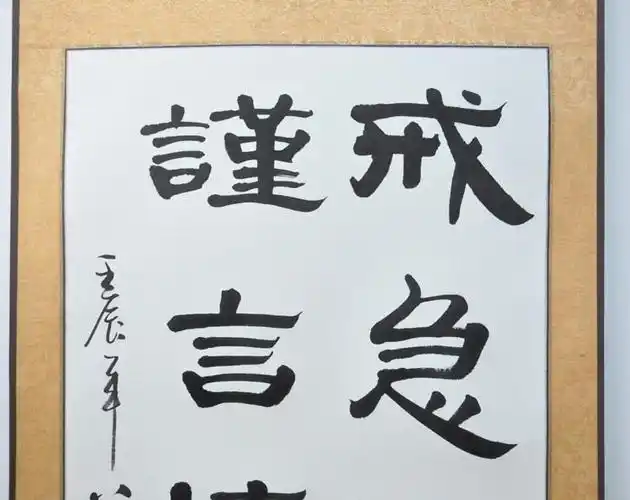 戒急
謹言
壬辰年